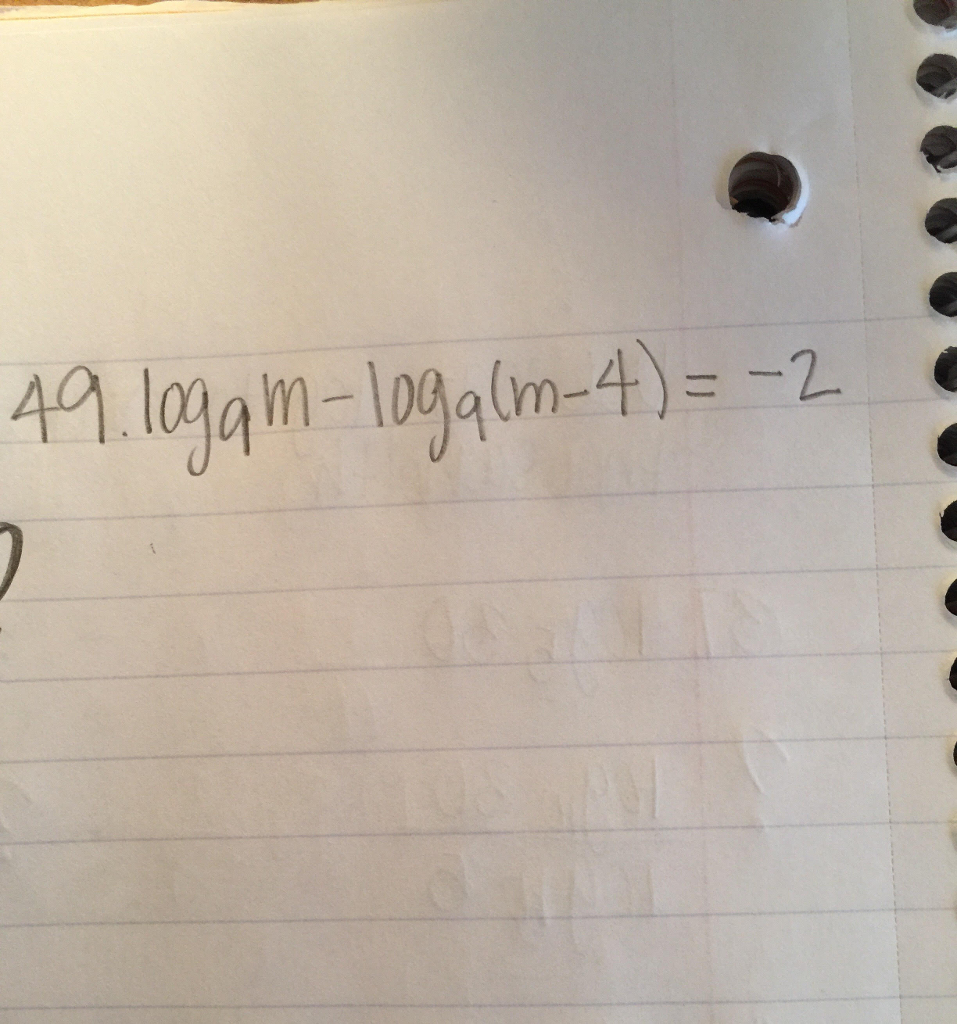 49. log₉m - log₉(m-4) = -2